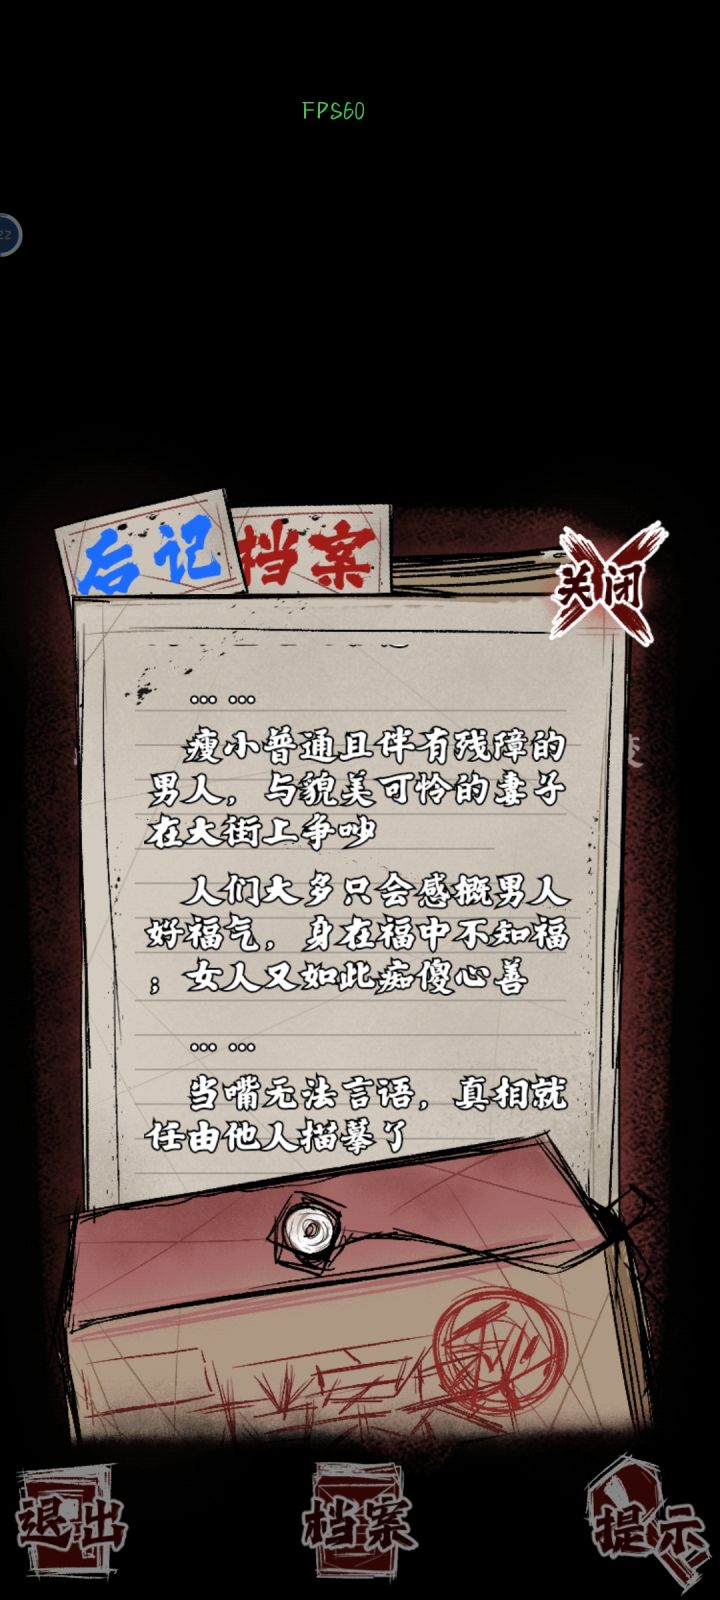 FPS60
后记
档案
关闭
... ...
瘦小普通且伴有残障的
男人，与貌美可怜的妻子
在大街上争吵
人们大多只会感概男人
好福气，身在福中不知福
；女人又如此痴傻心善
... ...
当嘴无法言语，真相就
任由他人描摹了
退出
档案
提示